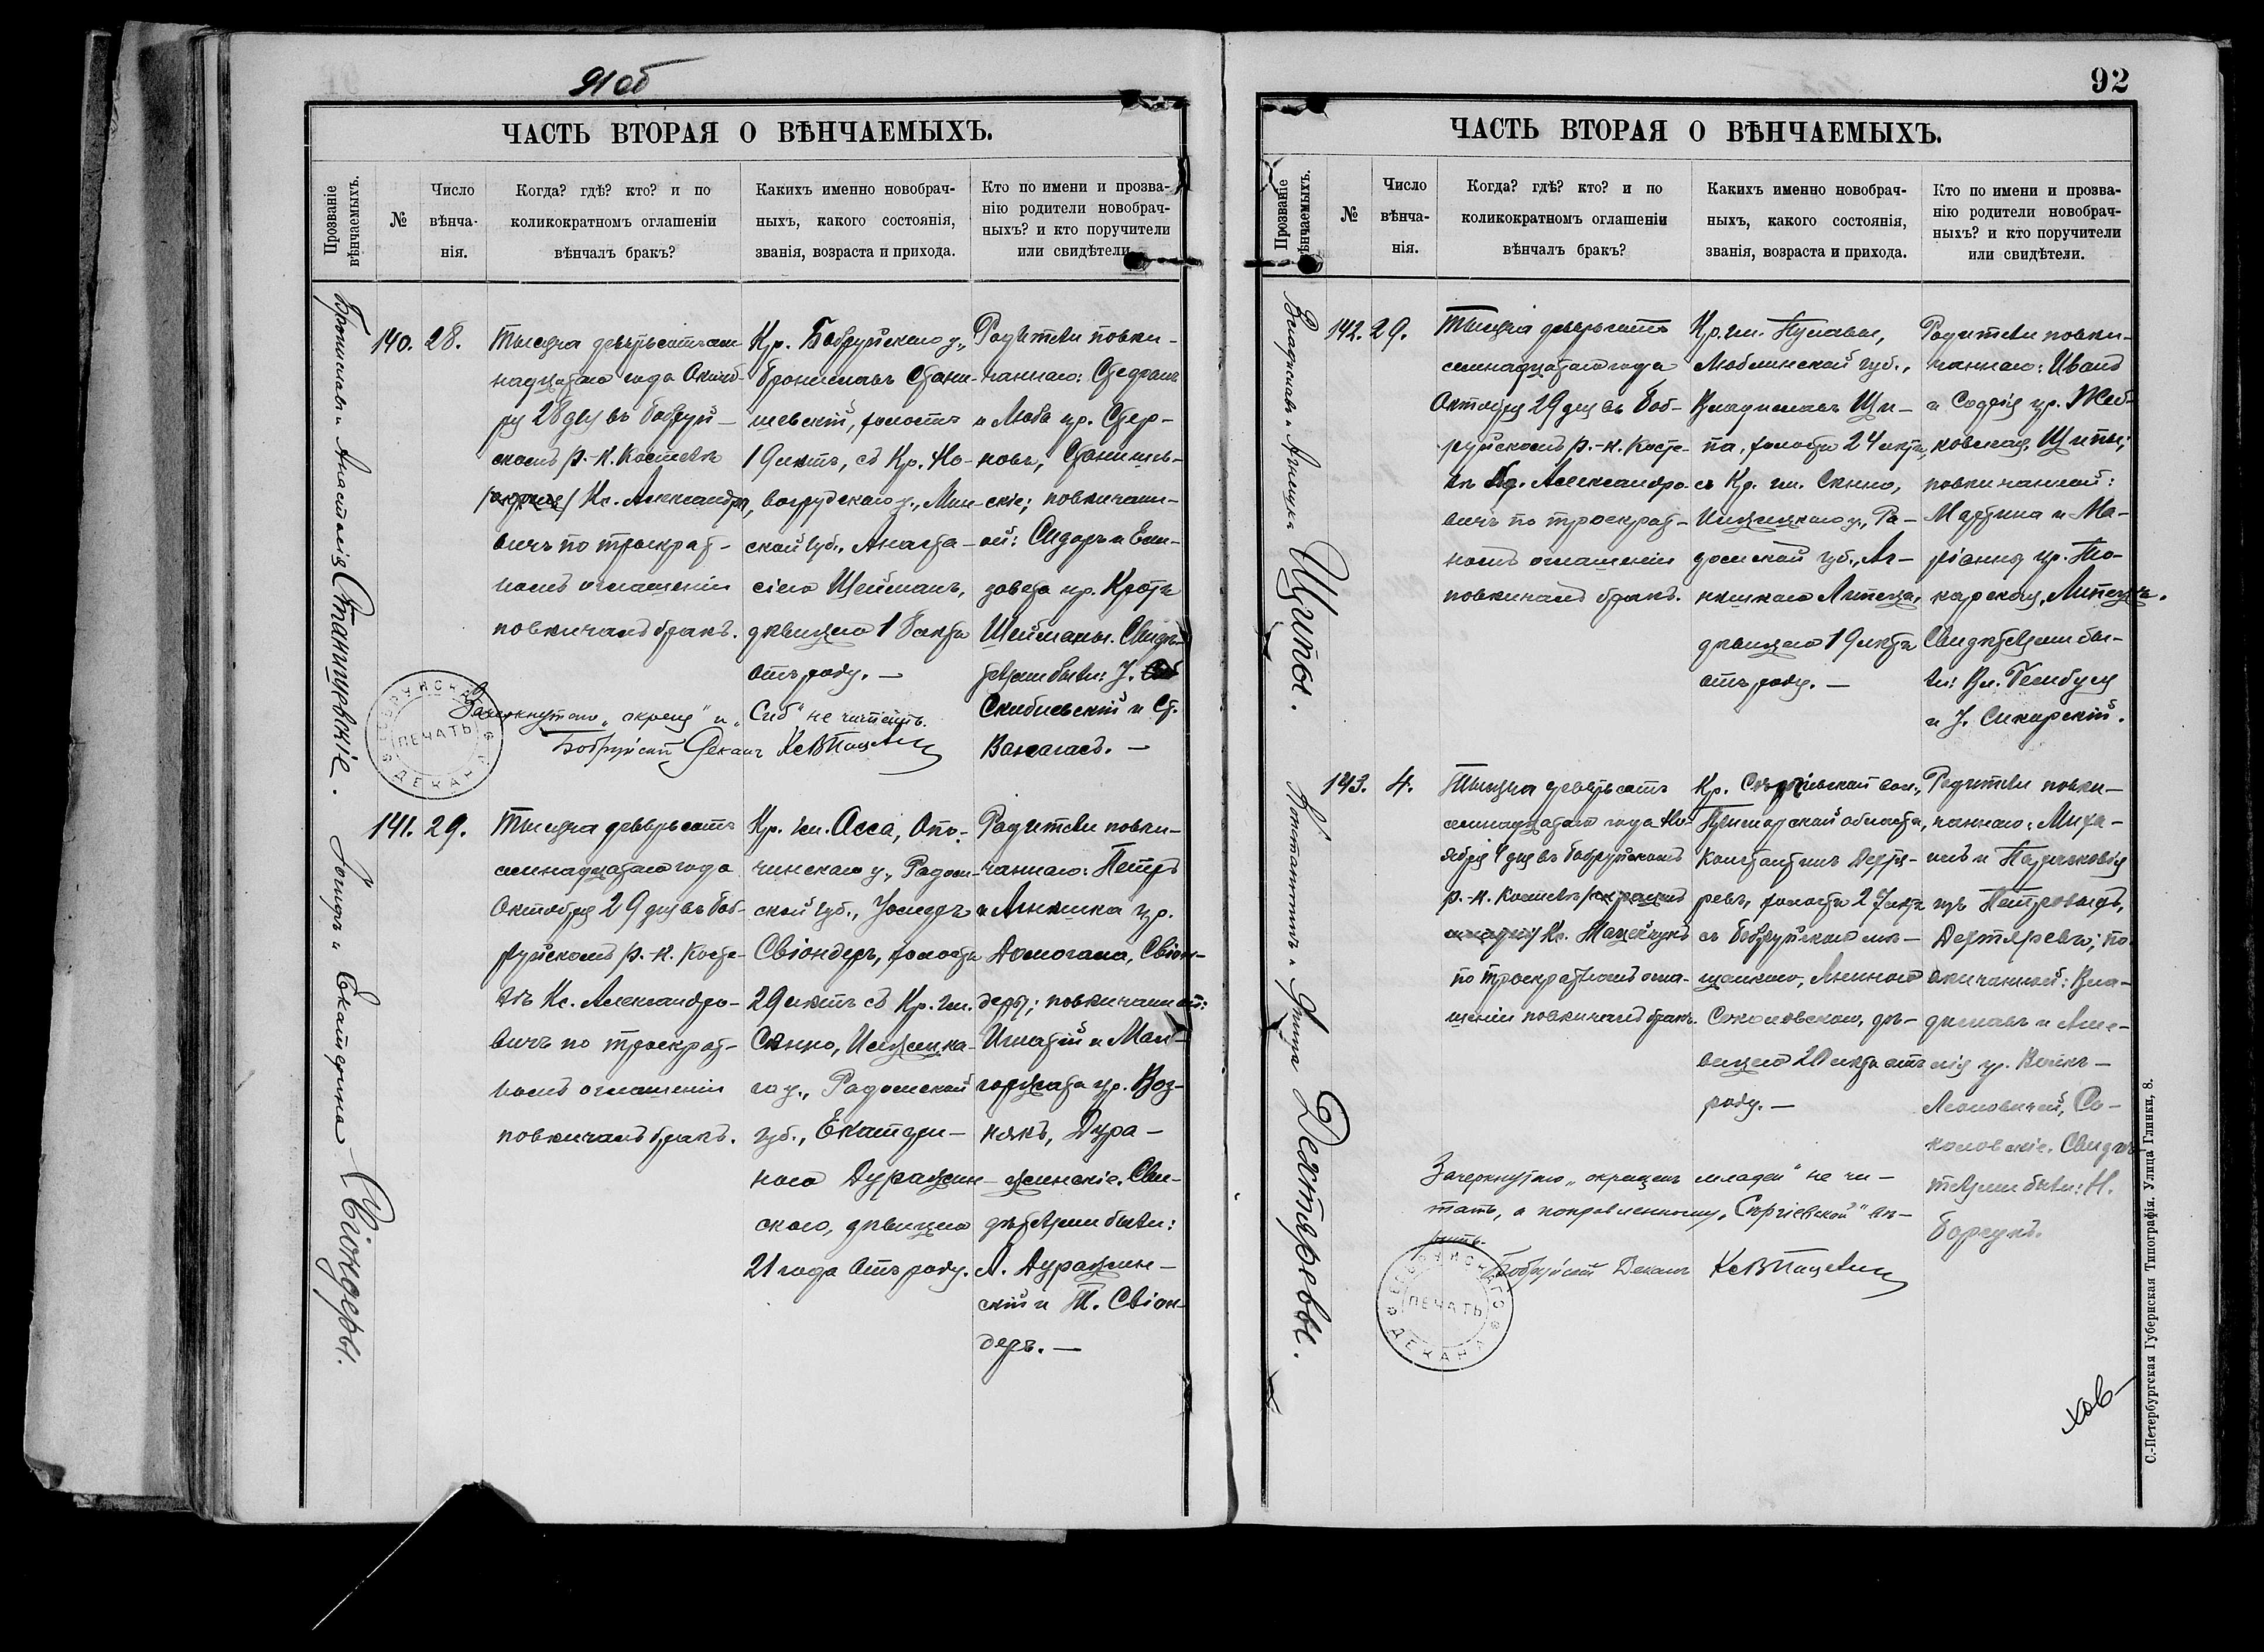 91 об
ЧАСТЬ ВТОРАЯ О ВѢНЧАЕМЫХЪ.
Прозваніе
вѣнчаемыхъ.
№
Число
вѣнча-
нія.
Когда? гдѣ? кто? и по
коликократномъ оглашеніи
вѣнчалъ бракъ?
Какихъ именно новобрач-
ныхъ, какого состоянія,
званія, возраста и прихода.
Кто по имени и прозва-
нію родители новобрач-
ныхъ? и кто поручители
или свидѣтели.
Брониславъ и Анастасія Станишевскіе.
140. 28.
Тысяча девятьсотъ сем
надцатаго года Октяб-
ря 28 дня въ Бобруй-
скомъ р.-к. Костелѣ
Кс. Александро
вичъ по троекрат-
номъ оглашеніи
повѣнчалъ бракъ.
Кр. Бобруйскаго у.,
Брониславъ Стани-
шевскій, холостъ
19 лѣтъ, съ Кр. Но-
вогрудскаго у., Мин-
ской губ., Анаста-
сіею Шейманъ,
дѣвицею 18 лѣтъ
отъ роду. —
Родители повѣн-
чаннаго:
и Любa ур.
Станишев-
скіе; повѣнчанн-
ой: Сидоръ и Ели-
завета ур. Кротъ
Шейманы. Свидѣ-
телями были: І.
и Ст.
Зачеркнутаго „окрещ" и „Скб" не читать.
Бобруйскій Деканъ Кс
БОБРУЙСКАГО ДЕКАНА
ПЕЧАТЬ
Іосифъ и Екатерина Свіондеры.
141. 29.
Тысяча девятьсотъ
семнадцатаго года
Октября 29 дня въ Боб-
руйскомъ р.-к. Косте-
лѣ Кс. Александро-
вичъ по троекрат-
номъ оглашеніи
повѣнчалъ бракъ.
Кр. гм. Осса, Опо-
чинскаго у., Радом-
ской губ., Іосифъ
Свіондеръ, холостъ
29 лѣтъ съ Кр. гм.
Сѣнно, Илжецка-
го у., Радомской
губ., Екатери-
ною Дуражин-
скою, дѣвицею
21 года отъ роду.
Родители повѣн-
чаннаго: Петръ
и Агнешка ур.
Домогала, Свіон-
деры; повѣнчанной:
Игнатій и Мал-
горжата ур. Воз-
някъ, Дура-
жинскіе. Сви-
дѣтелями были:
А. Дуражин-
скій и Т. Свіон-
деръ. —
92
ЧАСТЬ ВТОРАЯ О ВѢНЧАЕМЫХЪ.
Прозваніе
вѣнчаемыхъ.
№
Число
вѣнча-
нія.
Когда? гдѣ? кто? и по
коликократномъ оглашеніи
вѣнчалъ бракъ?
Какихъ именно новобрач-
ныхъ, какого состоянія,
званія, возраста и прихода.
Кто по имени и прозва-
нію родители новобрач-
ныхъ? и кто поручители
или свидѣтели.
Владиславъ и Агнешка Щипы.
142. 29.
Тысяча девятьсотъ
семнадцатаго года
Октября 29 дня въ Боб-
руйскомъ р.-к. Косте-
лѣ Кс. Александро-
вичъ по троекрат-
номъ оглашеніи
повѣнчалъ бракъ.
Кр. гм. Пулавы,
Люблинской губ.,
Владиславъ Щи-
па, холостъ 24 лѣтъ,
съ Кр. гм. Сѣнно,
Илжецкаго у., Ра-
домской губ., Аг-
нешкою Липецъ,
дѣвицею 19 лѣтъ
отъ роду. —
Родители повѣн-
чаннаго: Иванъ
и Софія ур.
Щипы;
повѣнчанной:
Мартинъ и Ма-
ріанна ур. То-
карская, Липецъ.
Свидѣтелями бы-
ли: Вл.
и І. Сикорскій.
Константинъ и Янина Дехтяревы.
143. 4.
Тысяча девятьсотъ
семнадцатаго года Но-
ября 4 дня въ Бобруйскомъ
р.-к. Костелѣ
Кс. Мацейчукъ
по троекратномъ огла-
шеніи повѣнчалъ бракъ.
Кр. Сергіевской вол.,
Приморской области,
Константинъ Дехтя-
ревъ, холостъ 27 лѣтъ
съ Бобруйскою мѣ-
щанкою, Яниною
Соколовскою, дѣ-
вицею 20 лѣтъ отъ
роду. —
Родители повѣн-
чаннаго: Миха-
илъ и
изъ Петровыхъ,
Дехтяревы; по-
вѣнчанной: Вла-
диславъ и Аме-
лія ур. Войнъ-
Со-
коловскіе. Свидѣ-
телями были: Н.
Борсукъ.
Зачеркнутаго „окрещенъ младен" не чи-
тать, а поправленному „Сергіевской" вѣ-
рить.
Бобруйскій Деканъ Кс
БОБРУЙСКАГО ДЕКАНА
ПЕЧАТЬ
С.-Петербургская Губернская Типографія. Улица Глинки, 8.